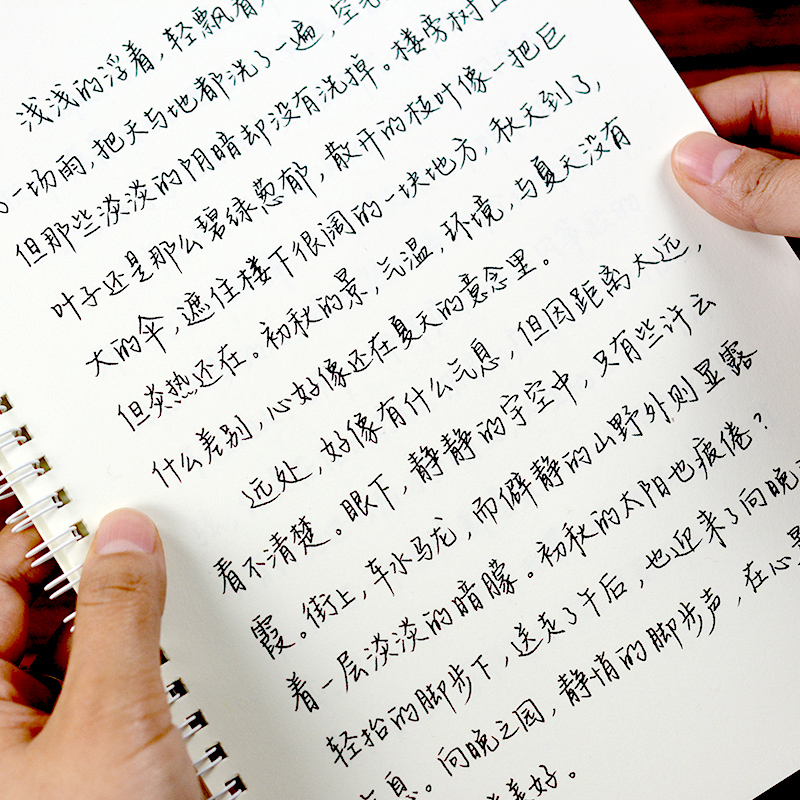 浅浅的浮着，轻飘着，
一场雨，把天与地都洗了一遍，空
但那些淡淡的阴暗却没有洗掉。楼旁树上
叶子还是那么碧绿葱郁，散开的枝叶像一把巨
大的伞，遮住楼下很阔的一块地方，秋天到了，
但炎热还在。初秋的景，气温，环境，与夏天没有
什么差别，心好像还在夏天的意念里。
远处，好像有什么气息，但因距离太远，
看不清楚。眼下，静静的宇空中，只有些许云
霞。街上，车水马龙，而僻静的山野外则显露
着一层淡淡的暗朦。初秋的太阳也疲倦？
轻抬的脚步下，送走了午后，也迎来了向晚
息。向晚之园，静悄的脚步声，在心
美好。